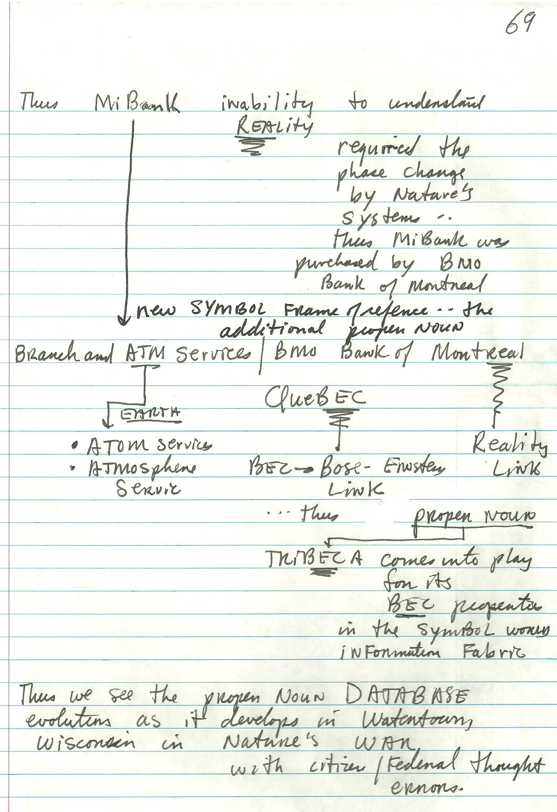 69
Thus MiBank inability to understand
REALITY
required the
phase change
by Nature's
systems ..
thus MiBank was
purchased by BMO
Bank of Montreal
new SYMBOL Frame of refence .. the
additional proper NOUN
Branch and ATM Services | BMO Bank of Montreal
QueBEC
EARTH
• ATOM Services
• ATMosphere
Servic
BEC → Bose-Einstein
Link
Reality
Link
... thus
proper NOUN
TRIBECA comes into play
for its
BEC
in the SYMBOL
INFormation Fabric
Thus we see the proper NOUN DATABASE
evolution as it develops in Watertown,
Wisconsin in Nature's WAR
with citizen / Federal thought
errors.